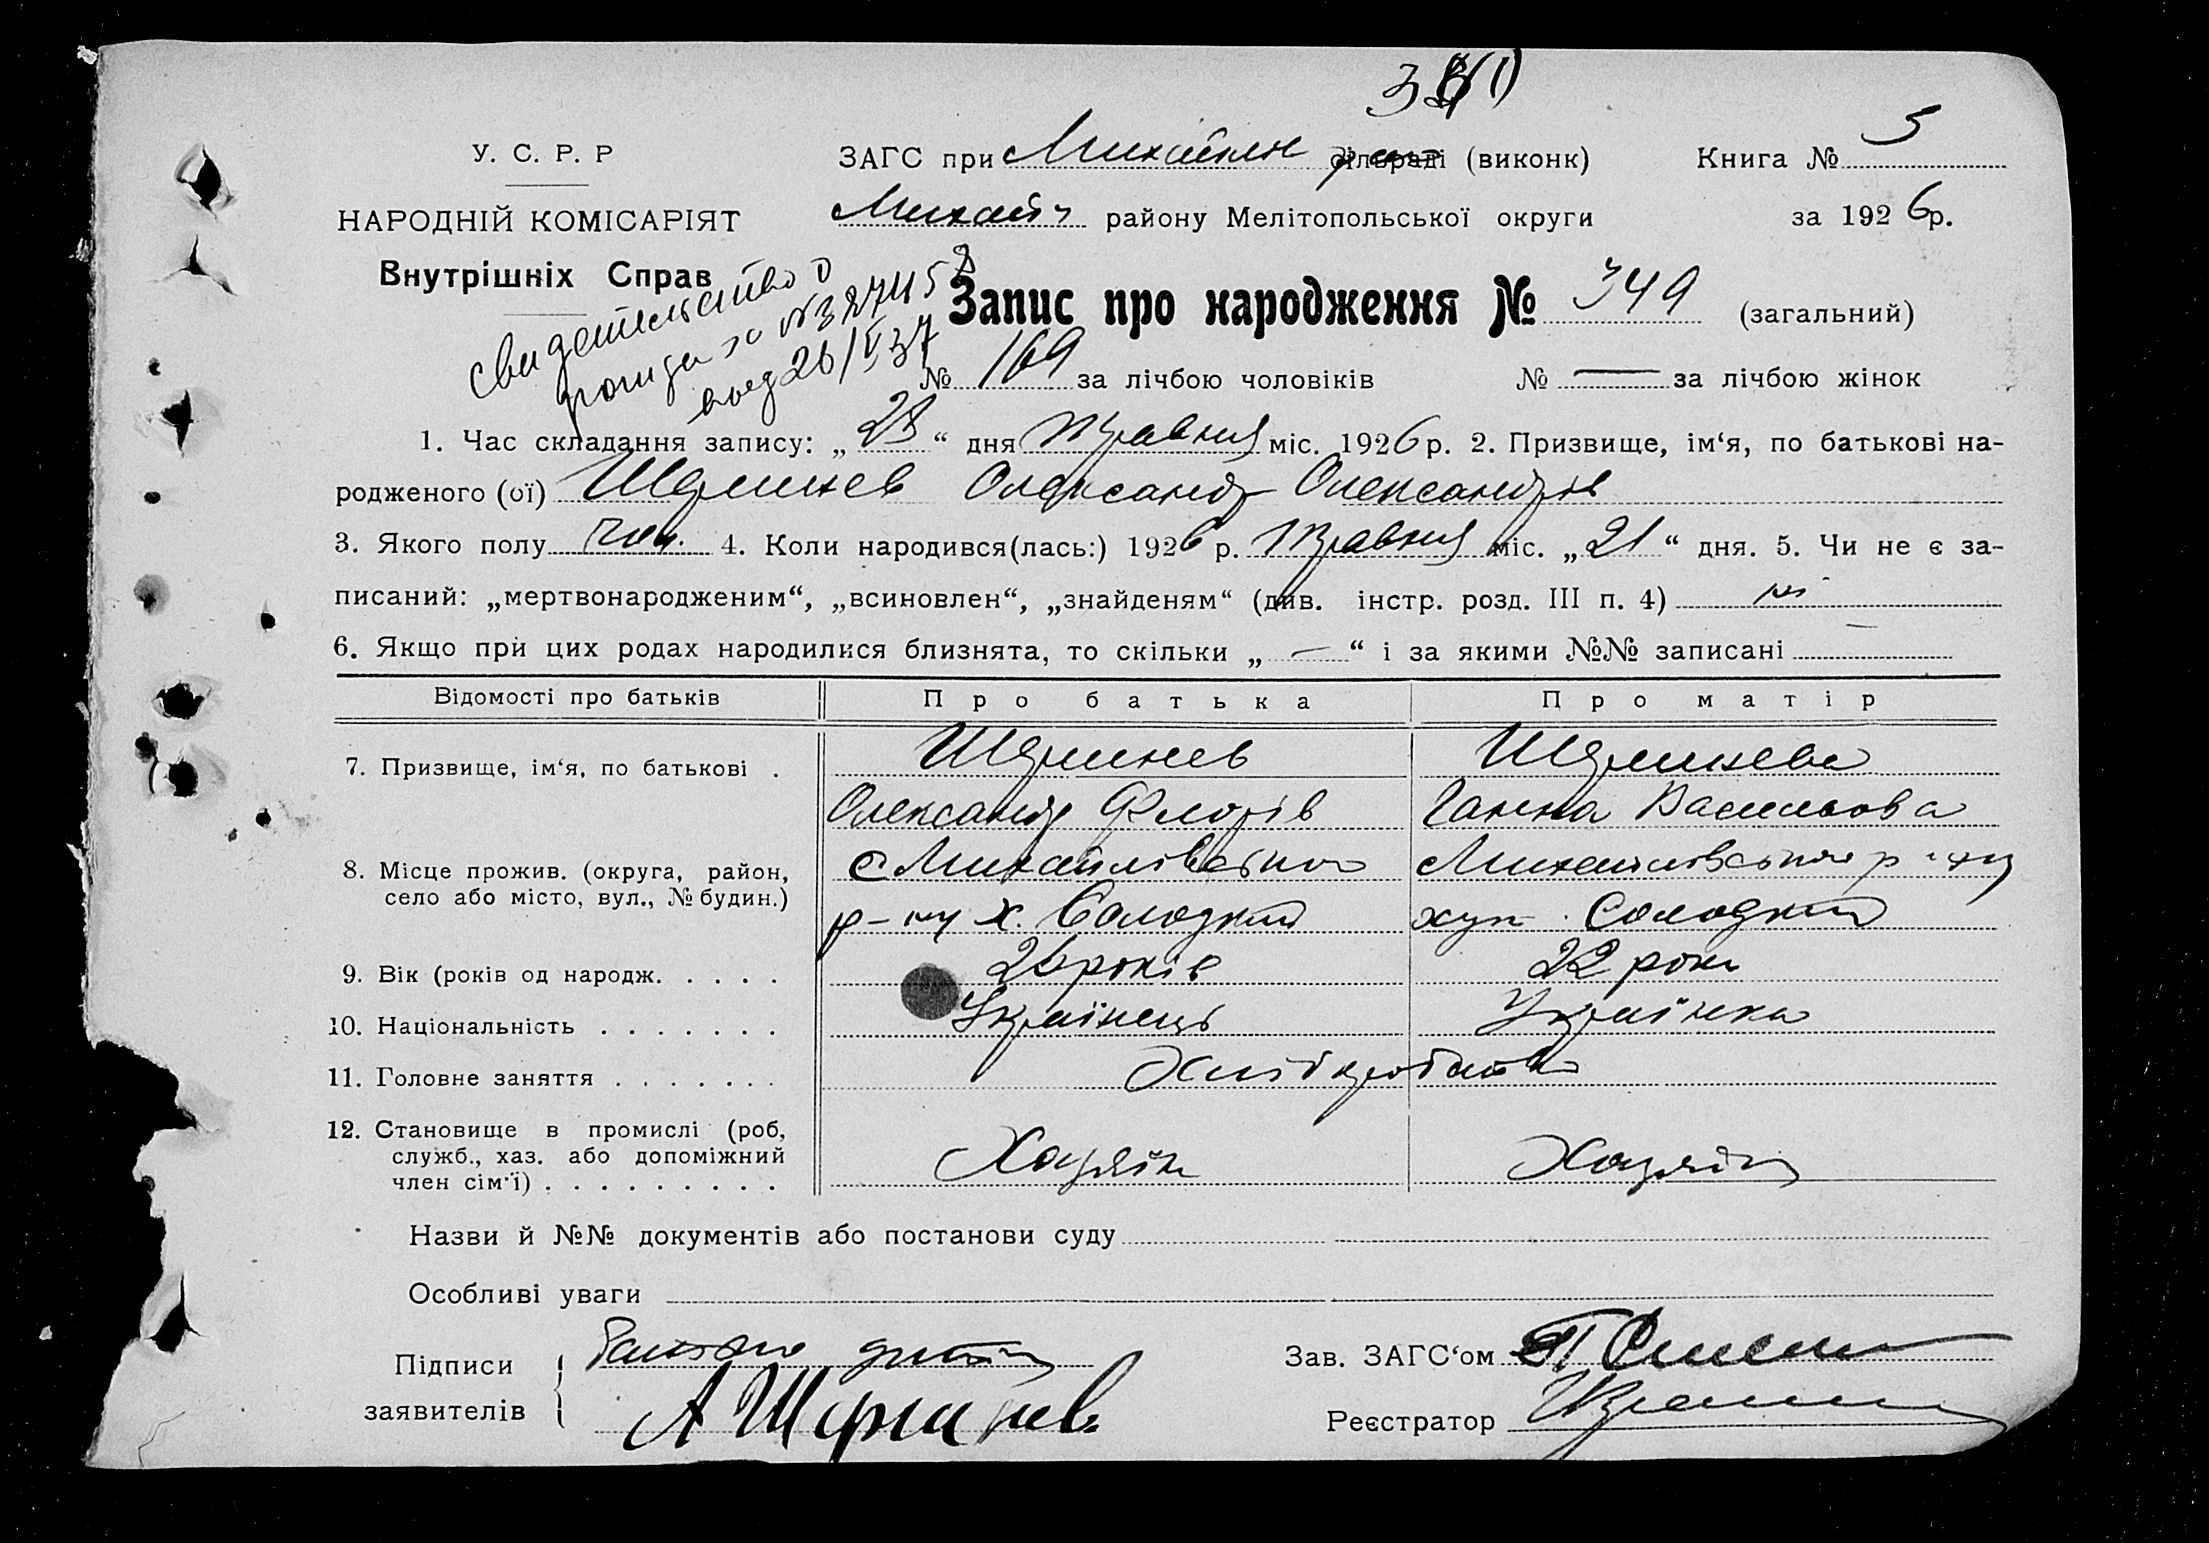 У. С. Р. Р
НАРОДНІЙ КОМІСАРІЯТ
Внутрішніх Справ
ЗАГС при (виконк)
Михайл району Мелітопольської округи
Книга № 3
за 1926 р.
свидетельство о
рожд за № 327458
выд 26/V 37
Запис про народження № 349 (загальний)
№ 169 за лічбою чоловіків № — за лічбою жінок
1. Час складання запису: „28“ дня травня міс. 1926 р. 2. Призвище, ім‘я, по батькові на-
родженого (ої) Олександр Олександрів
3. Якого полу чол. 4. Коли народився(лась:) 1926 р. травня міс. „21“ дня. 5. Чи не є за-
писаний: „мертвонародженим“, „всиновлен“, „знайденям“ (див. інстр. розд. III п. 4) ні
6. Якщо при цих родах народилися близнята, то скільки „—“ і за якими №№ записані —
Відомості про батьків Про батька Про матір
7. Призвище, ім‘я, по батькові .
Олександр Флорів Ганна Васильова
8. Місце прожив. (округа, район,
село або місто, вул., № будин.)
Михайлівського Михайлівського р-ну
р-ну х. Солодкий хут. Солодкий
9. Вік (років од народж. . . . . 26 років 22 роки
10. Національність . . . . . . . Українець Українка
11. Головне заняття . . . . . . . Хліборобство
12. Становище в промислі (роб,
служб., хаз. або допоміжний
член сім‘ї) . . . . . . . . . Хазяїн Хазяйка
Назви й №№ документів або постанови суду
Особливі уваги
Підписи
заявителів
Батько дитини
Зав. ЗАГС‘ом
Реєстратор